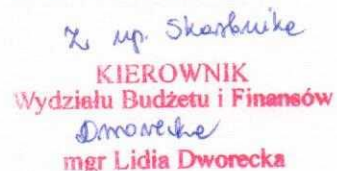 Z up. Skarbnika
KIEROWNIK
Wydziału Budżetu i Finansów
Dworecka
mgr Lidia Dworecka